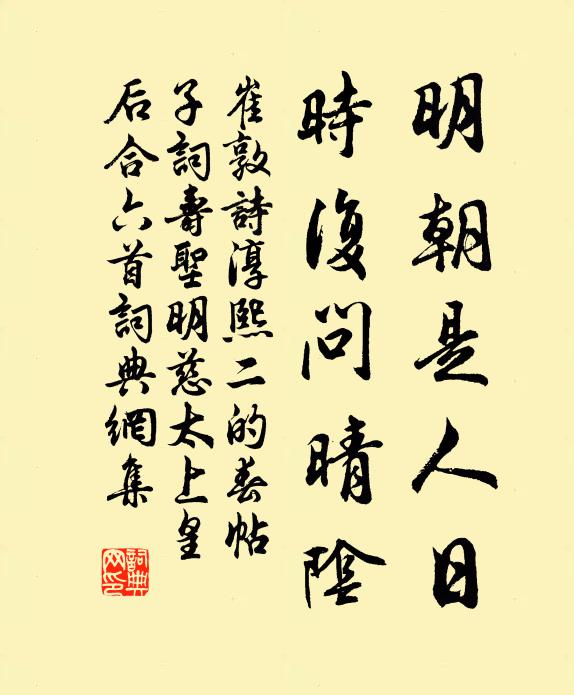 明朝是人日
時復問晴陰
崔敦詩淳熙二的春帖
子詞壽聖明慈太上皇
后合六首詞典網集
詞典
网印